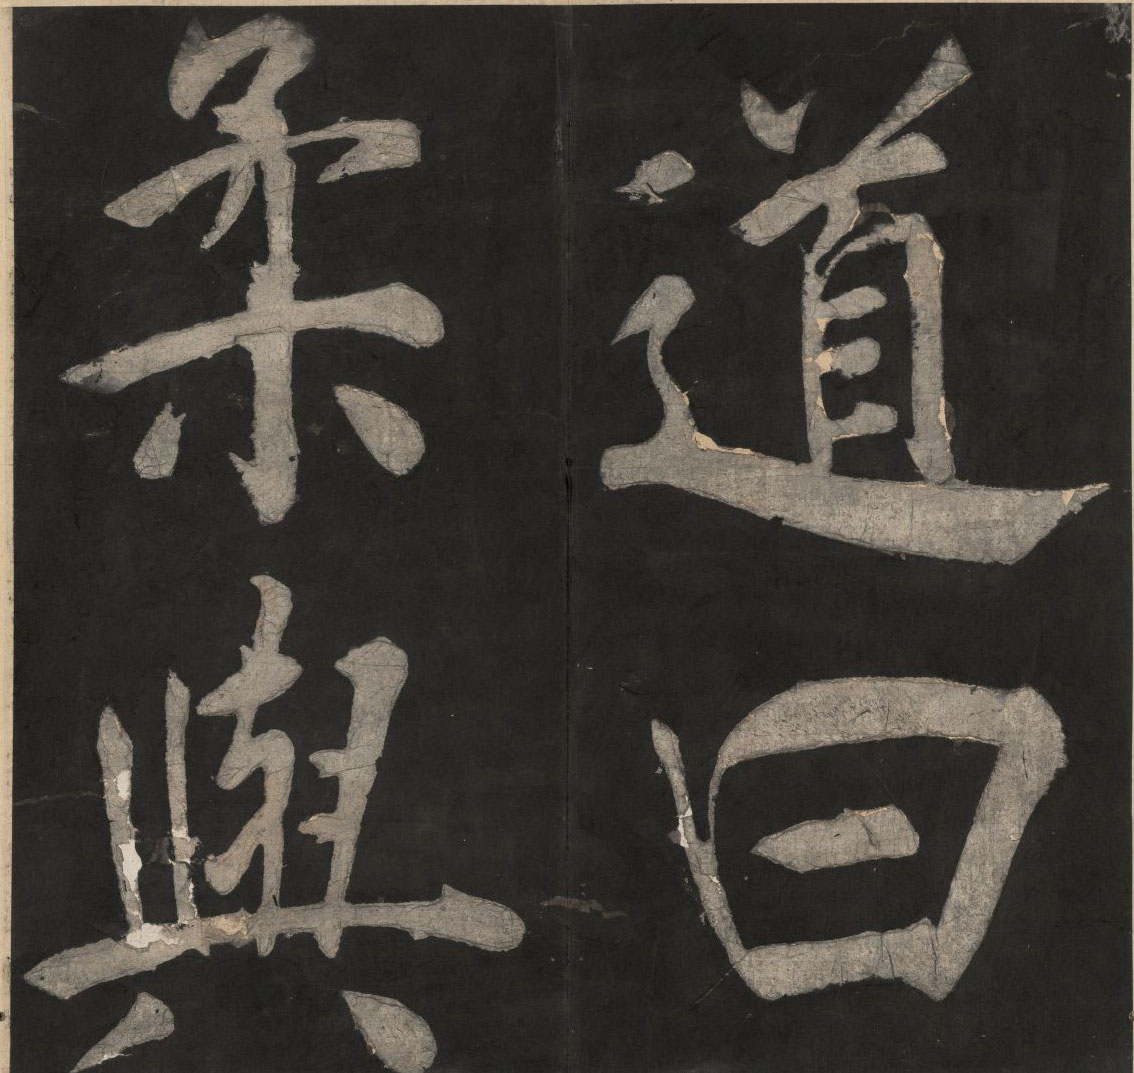 道曰
柔與